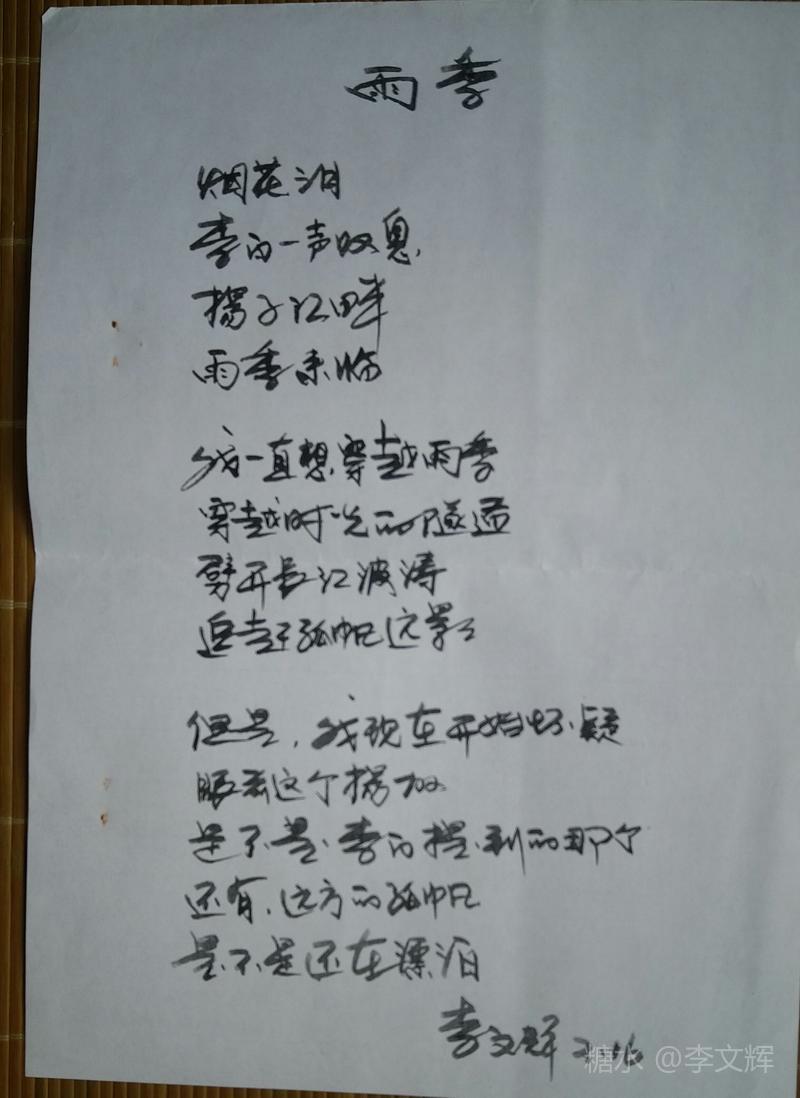 雨季
烟花泪
李白一声叹息
扬子江畔
雨季来临
我一直想穿越雨季
穿越时光的隧道
劈开长江波涛
追寻孤帆远影
但是，我现在开始怀疑
眼前这个扬州
是不是李白提到的那个
还有，远方的孤帆
是不是还在漂泊
李文辉
糖水 @李文辉